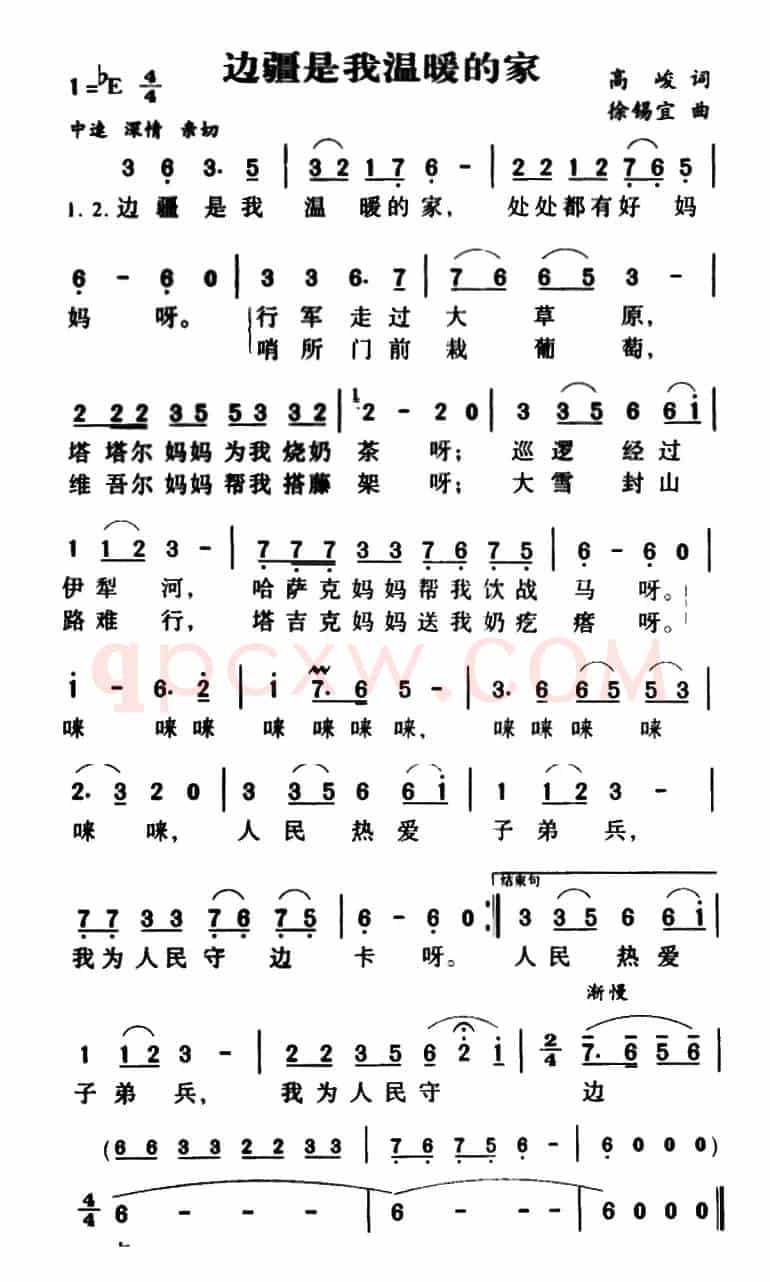 边疆是我温暖的家
1=♭E 4/4
高峻 词
徐锡宜 曲
中速 深情 亲切
3 6 3· 5 | 3 2 1 7 6 - | 2 2 1 2 7 6 5 |
1.2.边疆是我 温 暖的家, 处处都有好 妈
6 - 6 0 | 3 3 6· 7 | 7 6 6 5 3 - |
妈 呀。 行军走过大 草 原,
哨所门前栽 葡 萄,
2 2 2 3 5 5 3 3 2 | 2 - 2 0 | 3 3 5 6 6 i |
塔 塔尔妈妈为我烧奶 茶 呀; 巡逻 经过
维 吾尔妈妈帮我搭藤 架 呀; 大雪 封山
1 1 2 3 - | 7 7 7 3 3 7 6 7 5 | 6 - 6 0 |
伊犁 河, 哈萨克妈妈帮我饮战 马 呀。
路难 行, 塔吉克妈妈送我奶疙 瘩 呀。
qpcxw.COM
i - 6· 2 | i 7· 6 5 - | 3· 6 6 5 5 3 |
咪 咪咪 咪 咪咪咪, 咪咪咪 咪
2· 3 2 0 | 3 3 5 6 6 i | 1 1 2 3 - |
咪 咪, 人民 热爱 子弟 兵,
结束句
7 7 3 3 7 6 7 5 | 6 - 6 0 :‖ 3 3 5 6 6 i |
我为人民守 边 卡 呀。 人民 热爱
渐慢
1 1 2 3 - | 2 2 3 5 6 2 i | 2/4 7· 6 5 6 |
子弟 兵, 我为人民守 边
(6 6 3 3 2 2 3 3 | 7 6 7 5 6 - | 6 0 0 0)
4/4 6 - - - | 6 - - - | 6 0 0 0 ‖